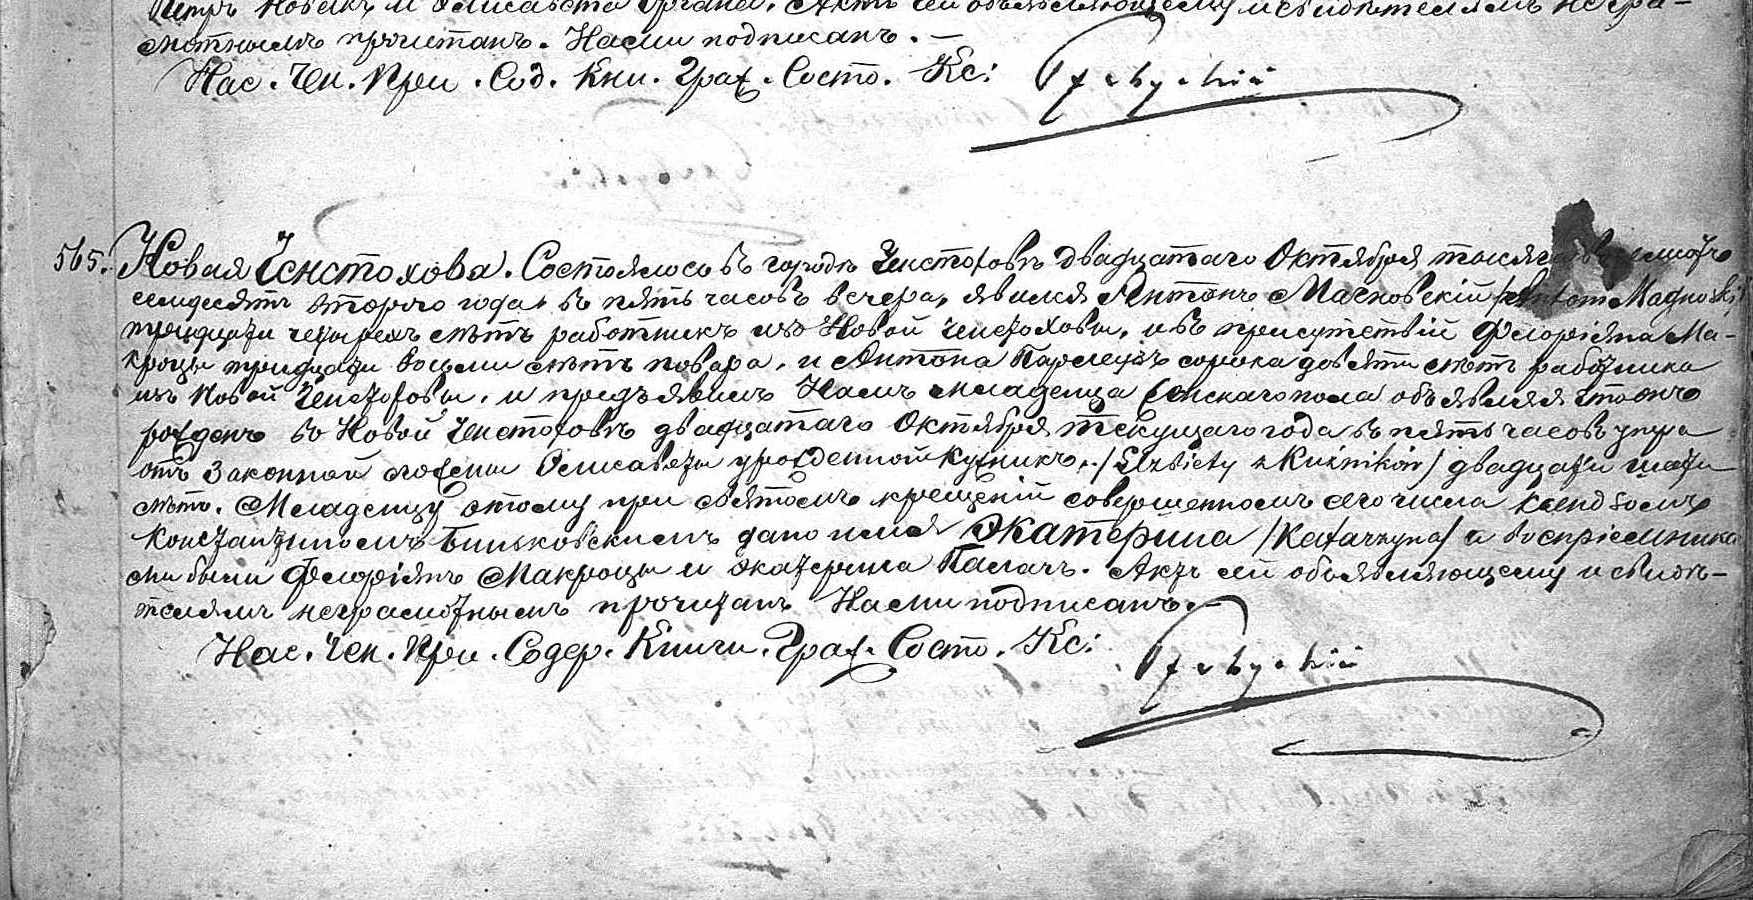 Петръ Новакъ и Елисавета Органа. Актъ сей объявляющему и свидѣтелямъ негра-
мотнымъ прочитанъ. Нами подписанъ. —
Нас. Чен. При. Сод. Кни. Граж. Состо. Кс:
565. Новая Ченстохова. Состоялось въ городѣ Ченстоховѣ двадцатаго Октября тысяча восемьсотъ
семьдесятъ втораго года въ пять часовъ вечера, явился Антонъ Магновскій /Antoni Magnoski/
тридцати четырехъ лѣтъ работникъ изъ Новой Ченстоховы, и въ присутствіи Флоріяна Ма-
кроцы тридцати восьми лѣтъ повара, и Антона сорока девяти лѣтъ работника
изъ Новой Ченстоховы, и предъявилъ Намъ младенца женскаго пола объявляя что онъ
рожденъ во Новой Ченстоховѣ двадцатаго Октября текущаго года въ пять часовъ утра
отъ законной его жены Елисаветы урожденной Кузникъ /Elzbiety z Kuźników/ двадцати шести
лѣтъ. Младенцу этому при святомъ крещеніи совершенномъ сего числа Ксендзомъ
Константиномъ Бињковскимъ дано имя Экатерина /Katarzyna/ а воспріемника-
ми были Флоріянъ Макроцы и Экатерина Палачъ. Актъ сей объявляющему и свидѣ-
телямъ неграмотнымъ прочитанъ Нами подписанъ. —
Нас. Чен. При. Содер. Книги. Граж. Состо. Кс: